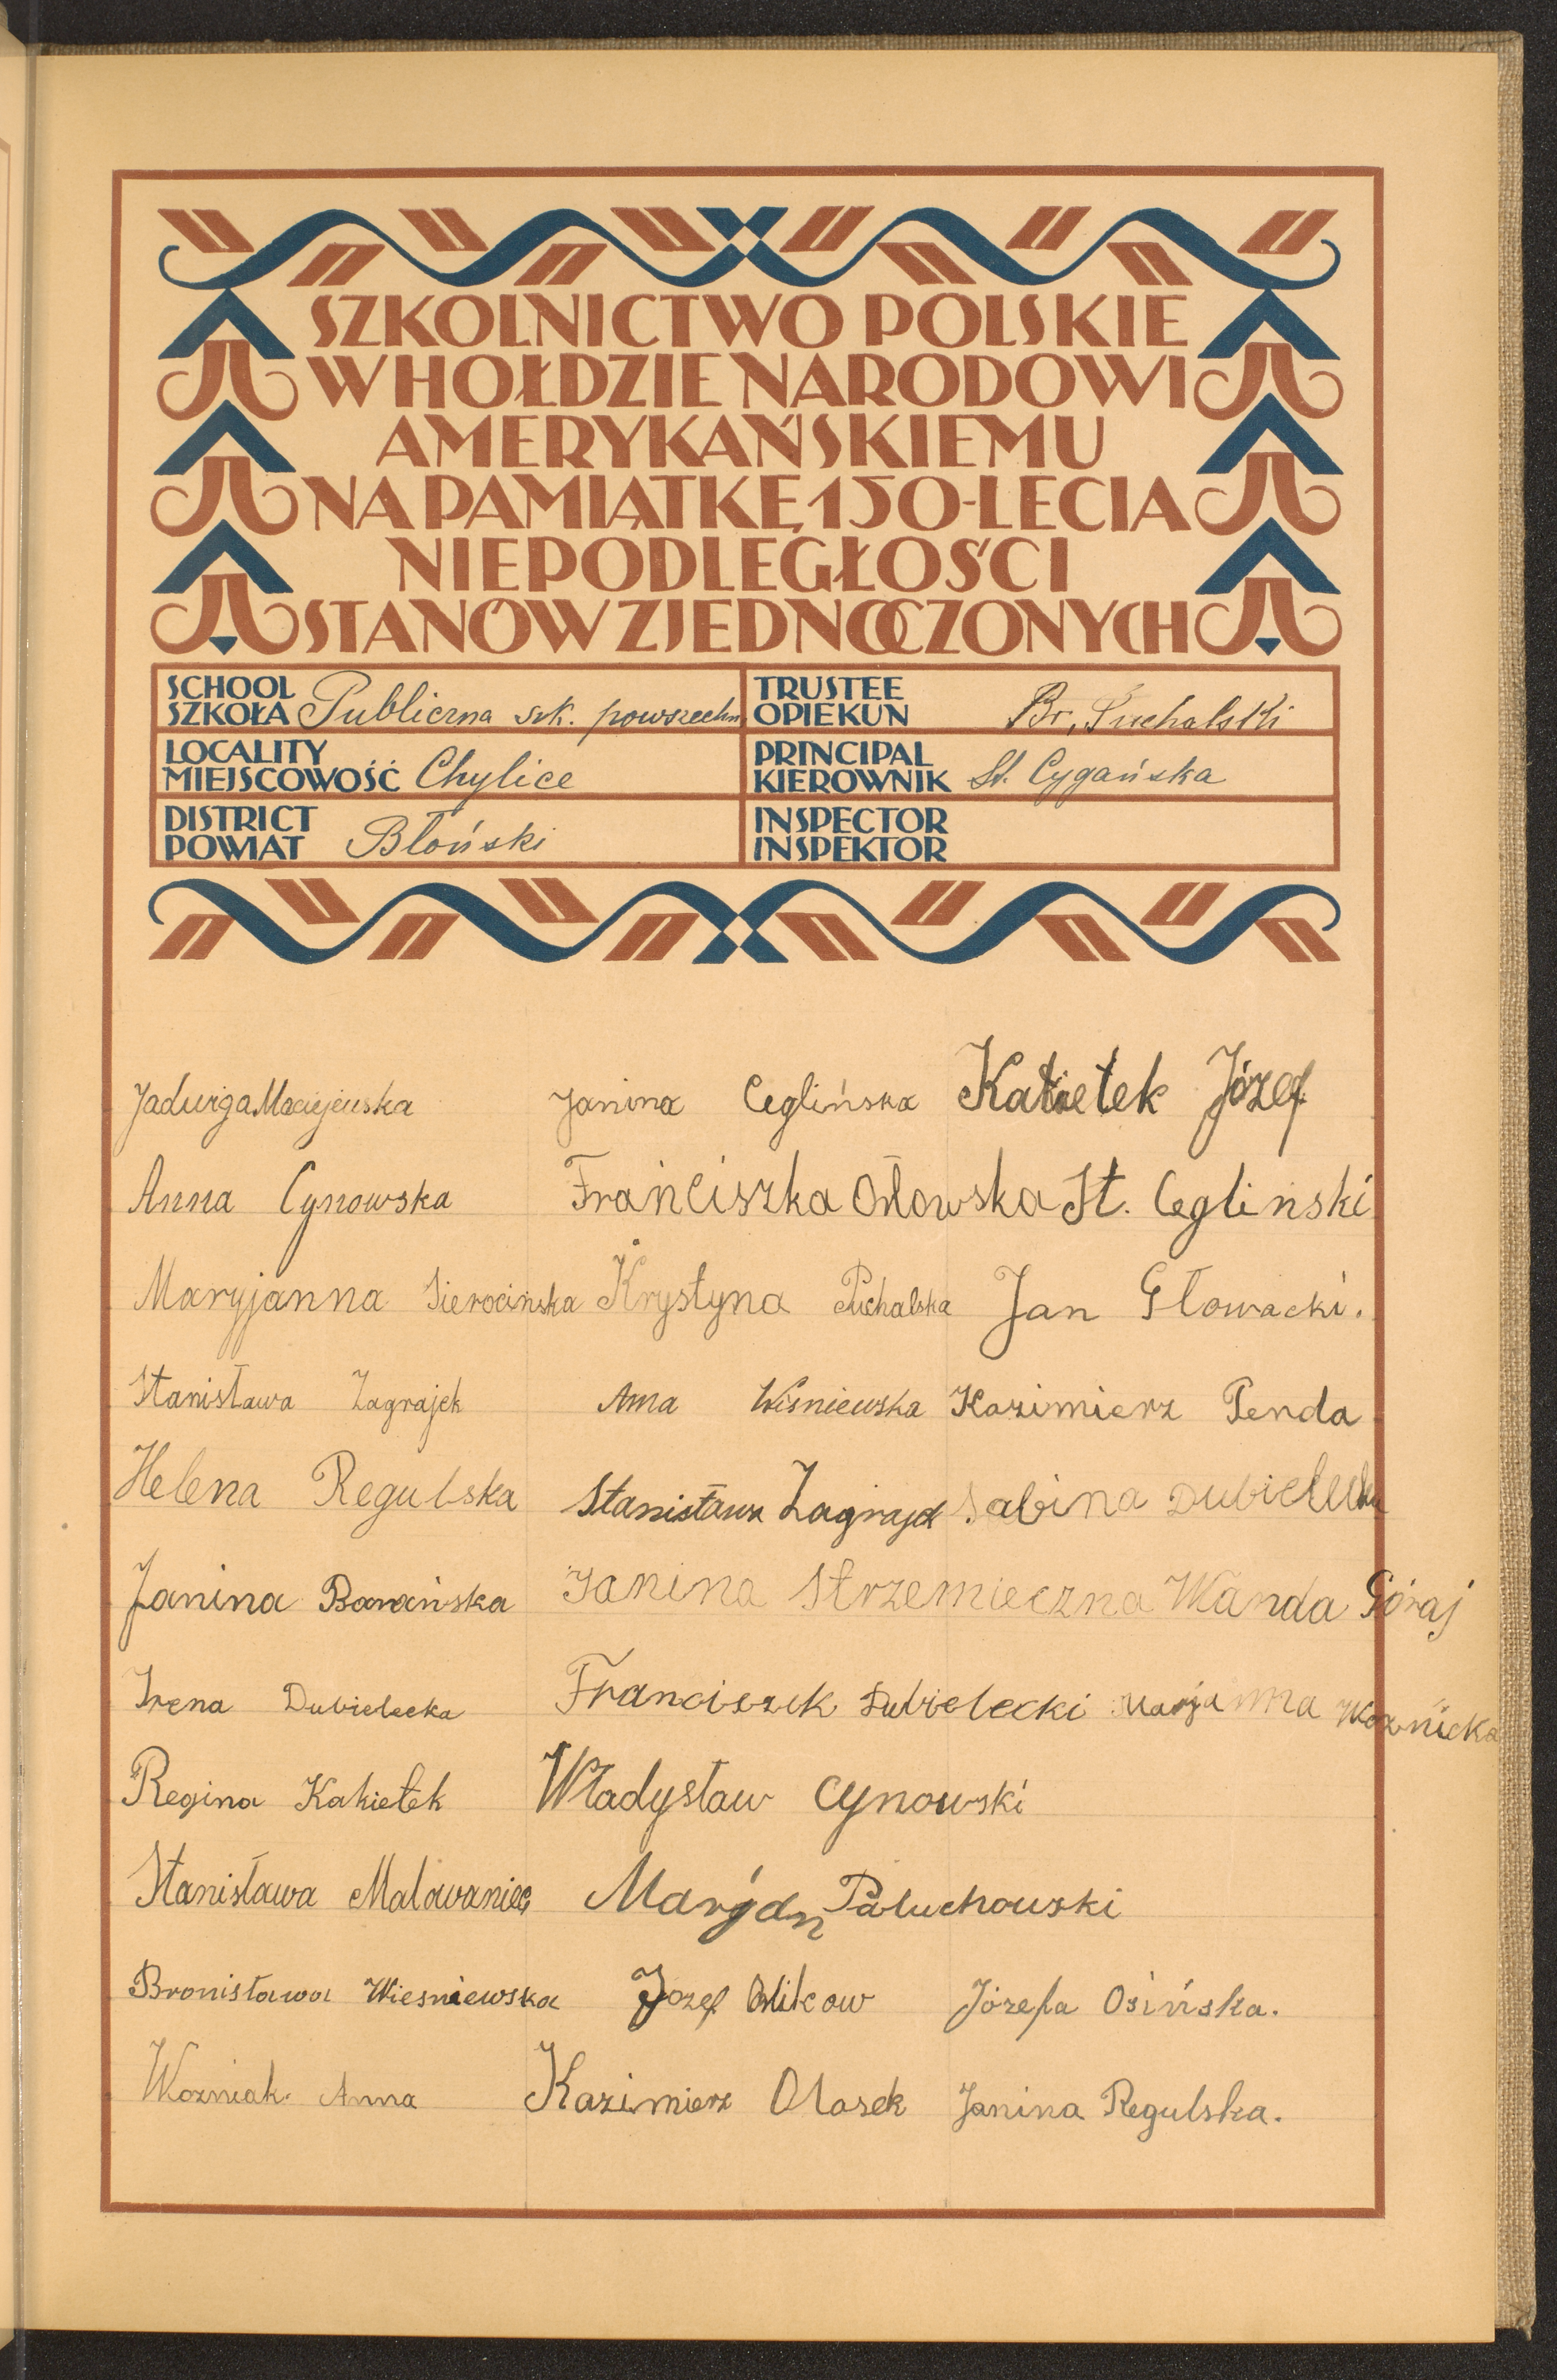 SZKOLNICTWO POLSKIE
W HOŁDZIE NARODOWI
AMERYKAŃSKIEMU
NA PAMIĄTKĘ 150-LECIA
NIEPODLEGŁOŚCI
STANÓW ZJEDNOCZONYCH
SCHOOL
SZKOŁA Publiczna szk. powszechn
TRUSTEE
OPIEKUN Br. Puchalski
LOCALITY
MIEJSCOWOŚĆ Chylice
PRINCIPAL
KIEROWNIK St. Cygańska
DISTRICT
POWIAT Błoński
INSPECTOR
INSPEKTOR
Jadwiga Maciejewska Janina Ceglińska Józef
Anna Cynowska Franciszka Orłowska St. Cegliński
Maryjanna Sierocińska Krystyna Puchalska Jan Głowacki.
Stanisława Zagrajek Anna Wiśniewska Kazimierz Penda
Helena Regulska Stanisława Zagrajek Sabina Dubielecka
Janina Barańska Janina Strzemieczna Wanda Góraj
Irena Dubielecka Franciszek Dubielecki Marjanna Woźnicka
Regina Kakietek Władysław Cynowski
Stanisława Malowaniec Maryjan Paluchowski
Bronisława Wiesniewska Jozef Józefa Osińska.
Wozniak. Anna Kazimierz Olasek Janina Regulska.